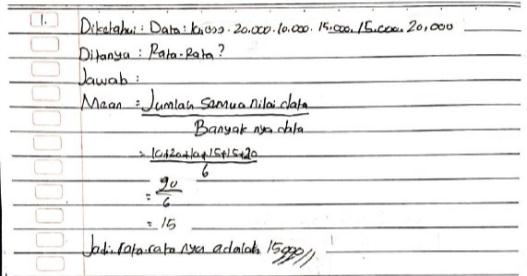 1. Diketahui : Data : 10,000. 20.000. 10.000. 15.000. 15.000. 20,000
Ditanya : Rata-Rata ?
Jawab :
Mean = Jumlah Samua nilai data
Banyak nya data
= 10+20+10+15+15+20
6
= 90
6
= 15
Jadi. rata-rata nya adalah 15.000//